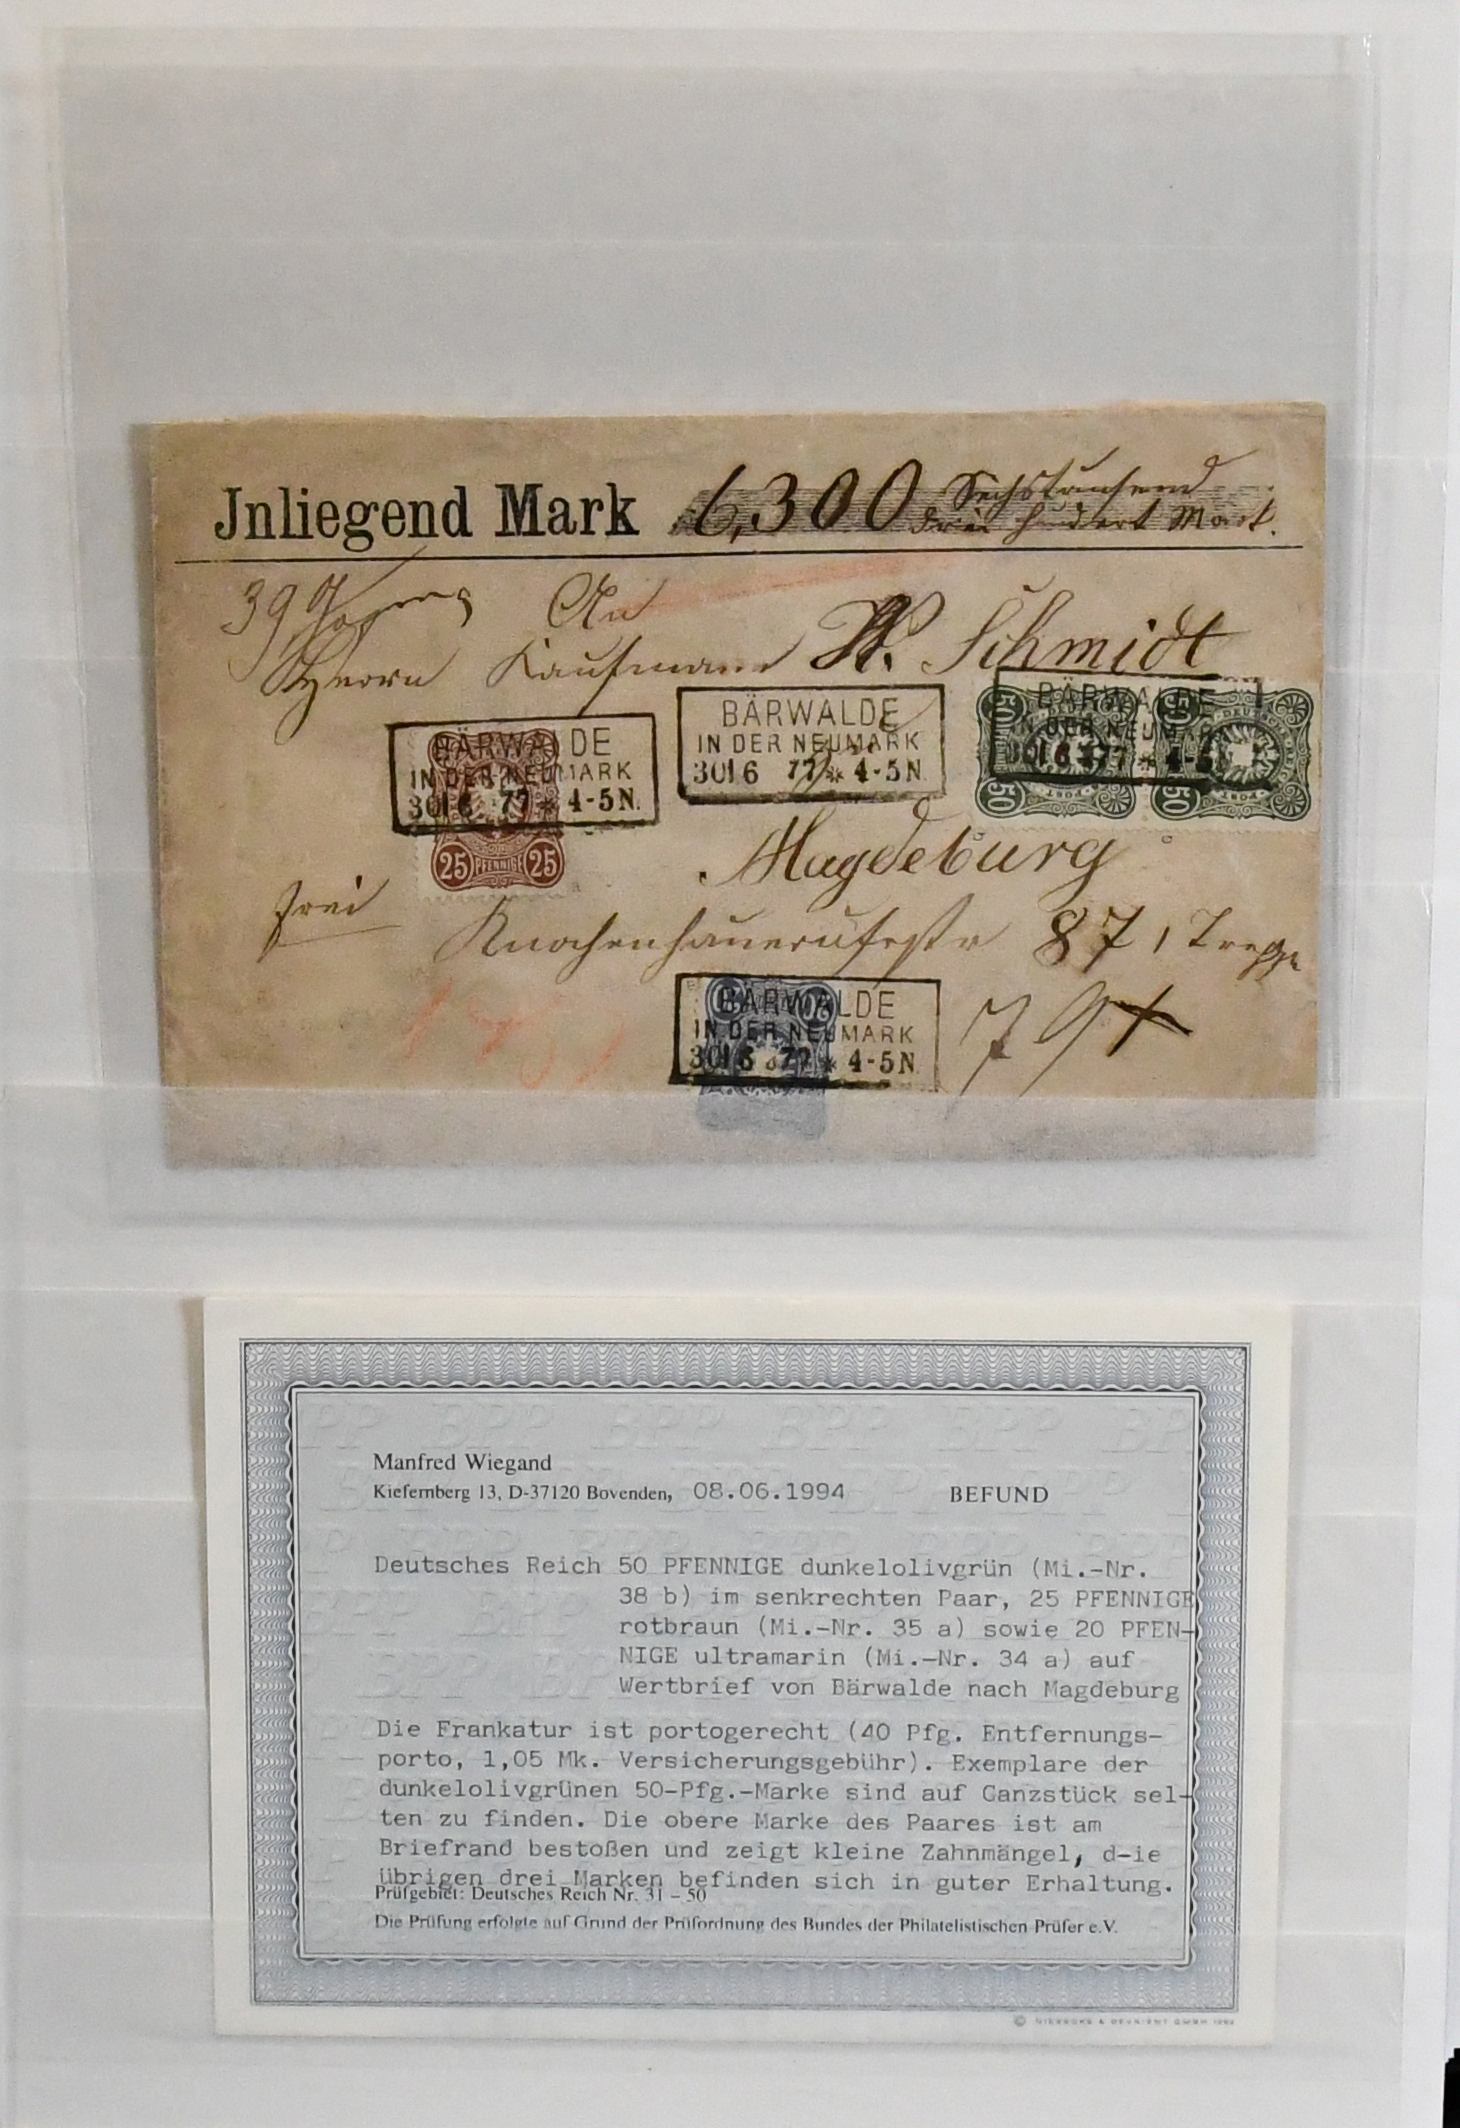 Jnliegend Mark 6,300 Sechstausend
drei hundert Mark.
39 An
Herrn Kaufmann W. Schmidt
BÄRWALDE
IN DER NEUMARK
30 6 77 * 4-5N.
25 PFENNIGE 25
BÄRWALDE
IN DER NEUMARK
30 6 77 * 4-5N.
BÄRWALDE
IN DER NEUMARK
30 6 77 * 4-5
50 50
50 50
Magdeburg
frei
Knochenhauerufestr 87, Treppe
BÄRWALDE
IN DER NEUMARK
30 6 77 * 4-5N.
79
Manfred Wiegand
Kiefernberg 13, D-37120 Bovenden, 08.06.1994 BEFUND
Deutsches Reich 50 PFENNIGE dunkelolivgrün (Mi.-Nr.
38 b) im senkrechten Paar, 25 PFENNIGE
rotbraun (Mi.-Nr. 35 a) sowie 20 PFEN-
NIGE ultramarin (Mi.-Nr. 34 a) auf
Wertbrief von Bärwalde nach Magdeburg
Die Frankatur ist portogerecht (40 Pfg. Entfernungs-
porto, 1,05 Mk. Versicherungsgebühr). Exemplare der
dunkelolivgrünen 50-Pfg.-Marke sind auf Ganzstück sel-
ten zu finden. Die obere Marke des Paares ist am
Briefrand bestoßen und zeigt kleine Zahnmängel, d-ie
übrigen drei Marken befinden sich in guter Erhaltung.
Prüfgebiet: Deutsches Reich Nr. 31 – 50
Die Prüfung erfolgte auf Grund der Prüfordnung des Bundes der Philatelistischen Prüfer e.V.